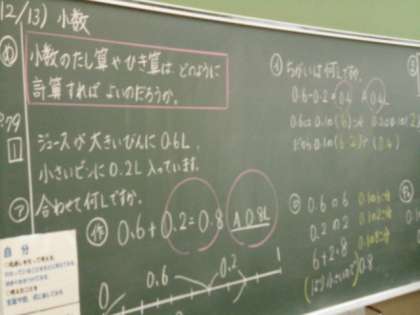 12/13) 小数
め
小数のたし算やひき算は どのように
計算すれば よいのだろうか。
P.79
1
ジュースが 大きいびんに 0.6L、
小さいビンに 0.2L 入っています。
ア 合わせて 何Lですか。
作 0.6+0.2=0.8 A 0.8L
0 0.6 0.2 1
イ ちがいは 何Lですか。
0.6-0.2=0.4 A 0.4L
0.6は 0.1の(6)こ分 0.2は 0.1の(2)
だから 0.1の(6-2)で(0.4)
0.6の6 0.1の6こ分
0.2の2 0.1の2こ分
6+2=8
0.8
自 分